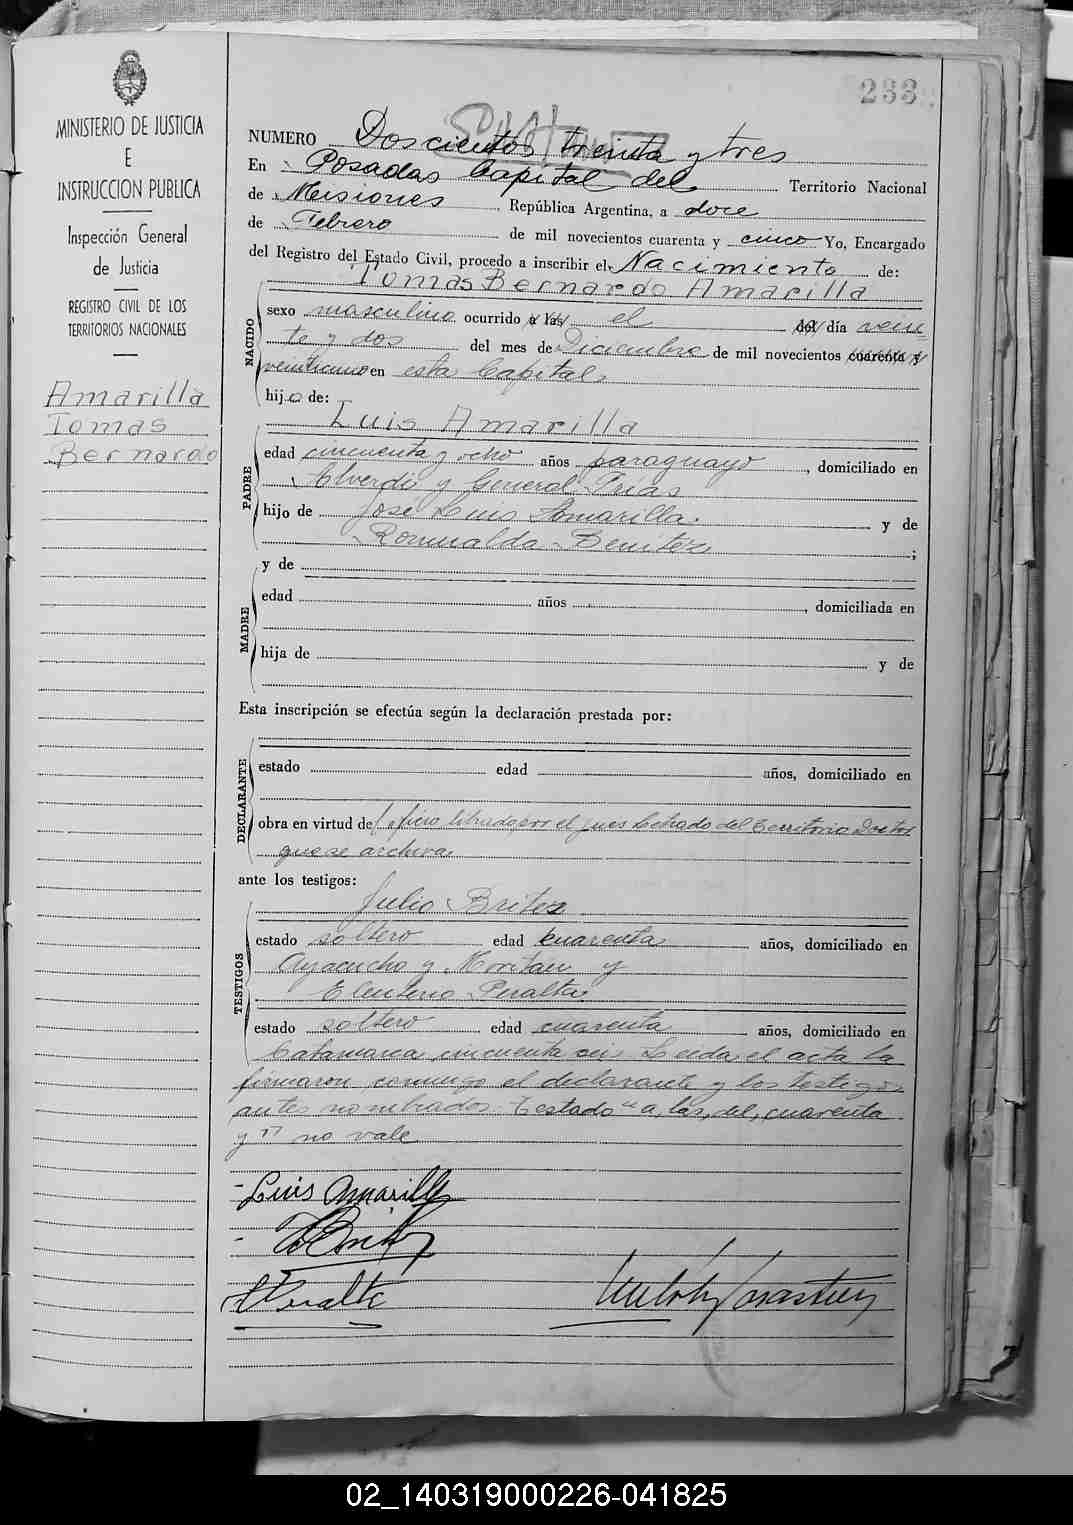 233
MINISTERIO DE JUSTICIA
E
INSTRUCCION PUBLICA
Inspección General
de Justicia
REGISTRO CIVIL DE LOS
TERRITORIOS NACIONALES
Amarilla
Tomas
Bernardo
NUMERO Doscientos treinta y tres
En Posadas Capital del Territorio Nacional
de Misiones República Argentina, a doce
de Febrero de mil novecientos cuarenta y cinco Yo, Encargado
del Registro del Estado Civil, procedo a inscribir el Nacimiento de:
Tomas Bernardo Amarilla
NACIDO
sexo masculino ocurrido a las el del día vein
te y dos del mes de Diciembre de mil novecientos cuarenta y
veinticinco en esta Capital
hijo de:
Luis Amarilla
PADRE
edad cincuenta y ocho años paraguayo, domiciliado en
Alverdi y General Frias
hijo de José Luis Amarilla y de
Romualda Benitez;
y de
MADRE
edad años, domiciliada en
hija de y de
Esta inscripción se efectúa según la declaración prestada por:
DECLARANTE
estado edad años, domiciliado en
obra en virtud de oficio librado por el Jues Letrado del Territorio Doctor
que se archiva
ante los testigos:
Julio Britez
TESTIGOS
estado soltero edad cuarenta años, domiciliado en
Ayacucho y y
Eleuterio Peralta
estado soltero edad cuarenta años, domiciliado en
Catamarca cincuenta Leida el acta la
firmaron conmigo el declarante y los testigos
antes nombrados Testado "a, las, del, cuarenta
y" no vale
Luis Amarilla
Peralta
02_140319000226-041825